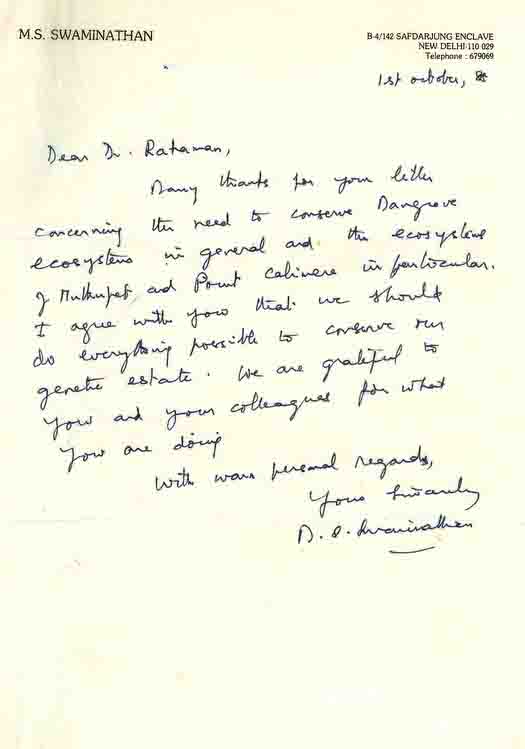 M.S. SWAMINATHAN
B-4/142 SAFDARJUNG ENCLAVE
NEW DELHI-110 029
Telephone : 679069
1st october,
Dear Dr. Rahaman,
Many thanks for your letter
concerning the need to conserve Mangrove
ecosystems in general and the ecosystems
of Muthupet and Point Calimere in particular.
I agree with you that we should
do everything possible to conserve our
genetic estate. We are grateful to
you and your colleagues for what
you are doing
With warm personal regards,
Yours Sincerely
M. S. Swaminathan